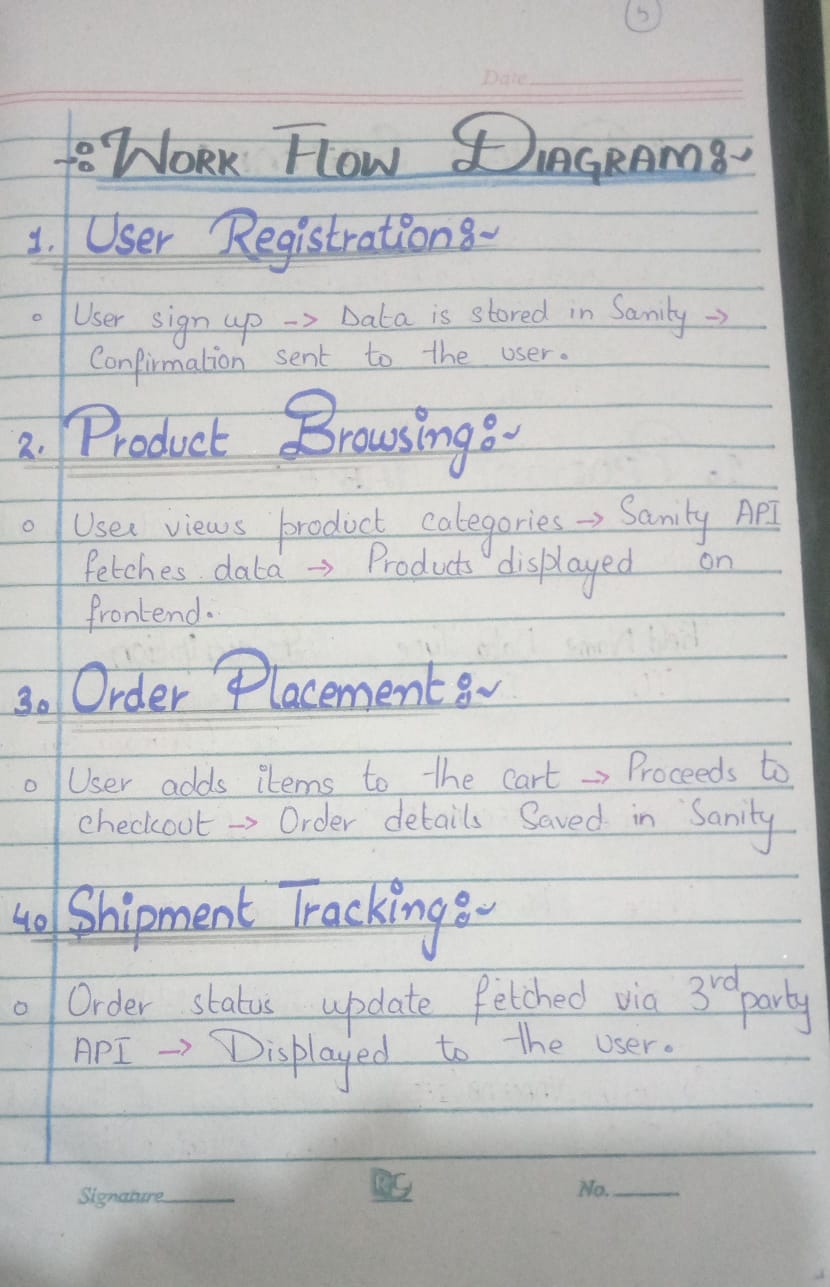 5
Date
-: WORK FLOW DIAGRAM:~
1. User Registration:~
o User sign up -> Data is stored in Sanity ->
Confirmation sent to the user.
2. Product Browsing:~
o User views product categories -> Sanity API
fetches data -> Products displayed on
frontend.
3. Order Placement:~
o User adds items to the cart -> Proceeds to
checkout -> Order details Saved in Sanity
4. Shipment Tracking:~
o Order status update fetched via 3rd party
API -> Displayed to the user.
Signature RG No.